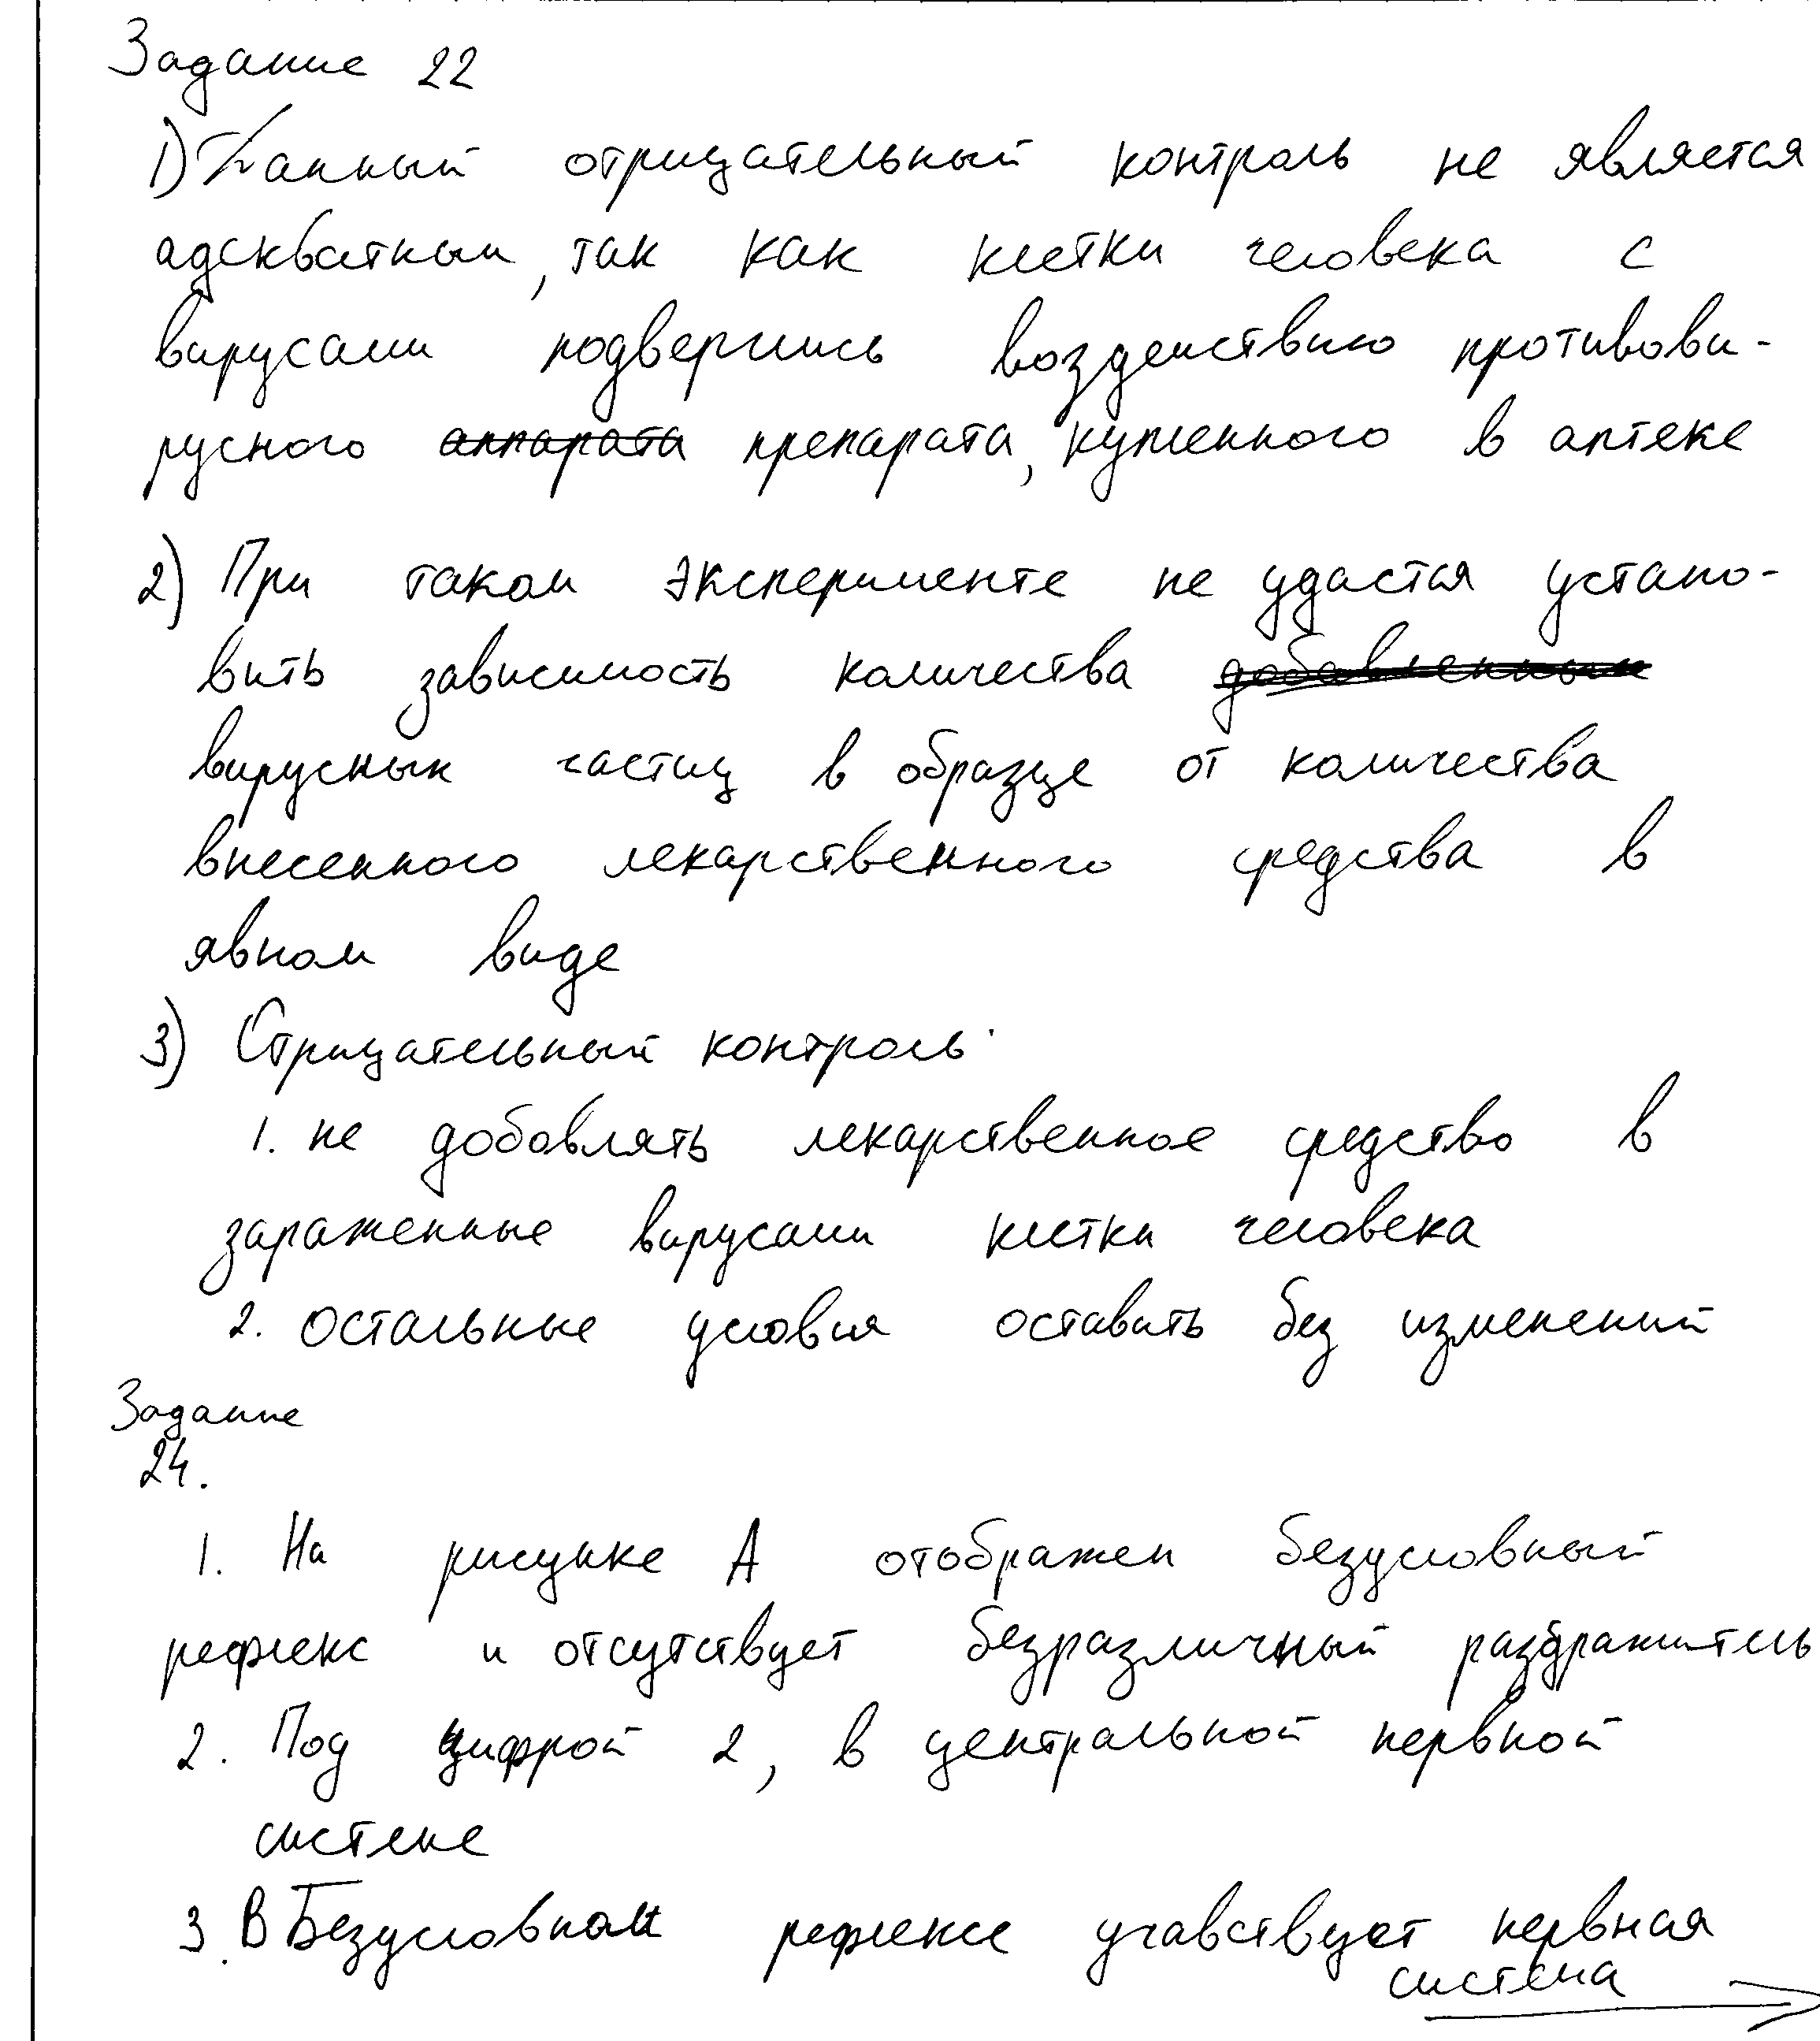 Задание 22
1) Данный отрицательный контроль не является
адекватным, так как клетки человека с
вирусами подверглись воздействию противови-
русного аппарата препарата, купленного в аптеке
2) При таком эксперименте не удастся устано-
вить зависимость количества добавленных
вирусных частиц в образце от количества
внесенного лекарственного средства в
явном виде
3) Отрицательный контроль:
1. не добавлять лекарственное средство в
зараженные вирусами клетки человека
2. остальные условия оставить без изменений
Задание
24.
1. На рисунке А отображен безусловный
рефлекс и отсутствует безразличный раздражитель
2. Под цифрой 2, в центральной нервной
системе
3. В Безусловном рефлексе учавствует нервная
система